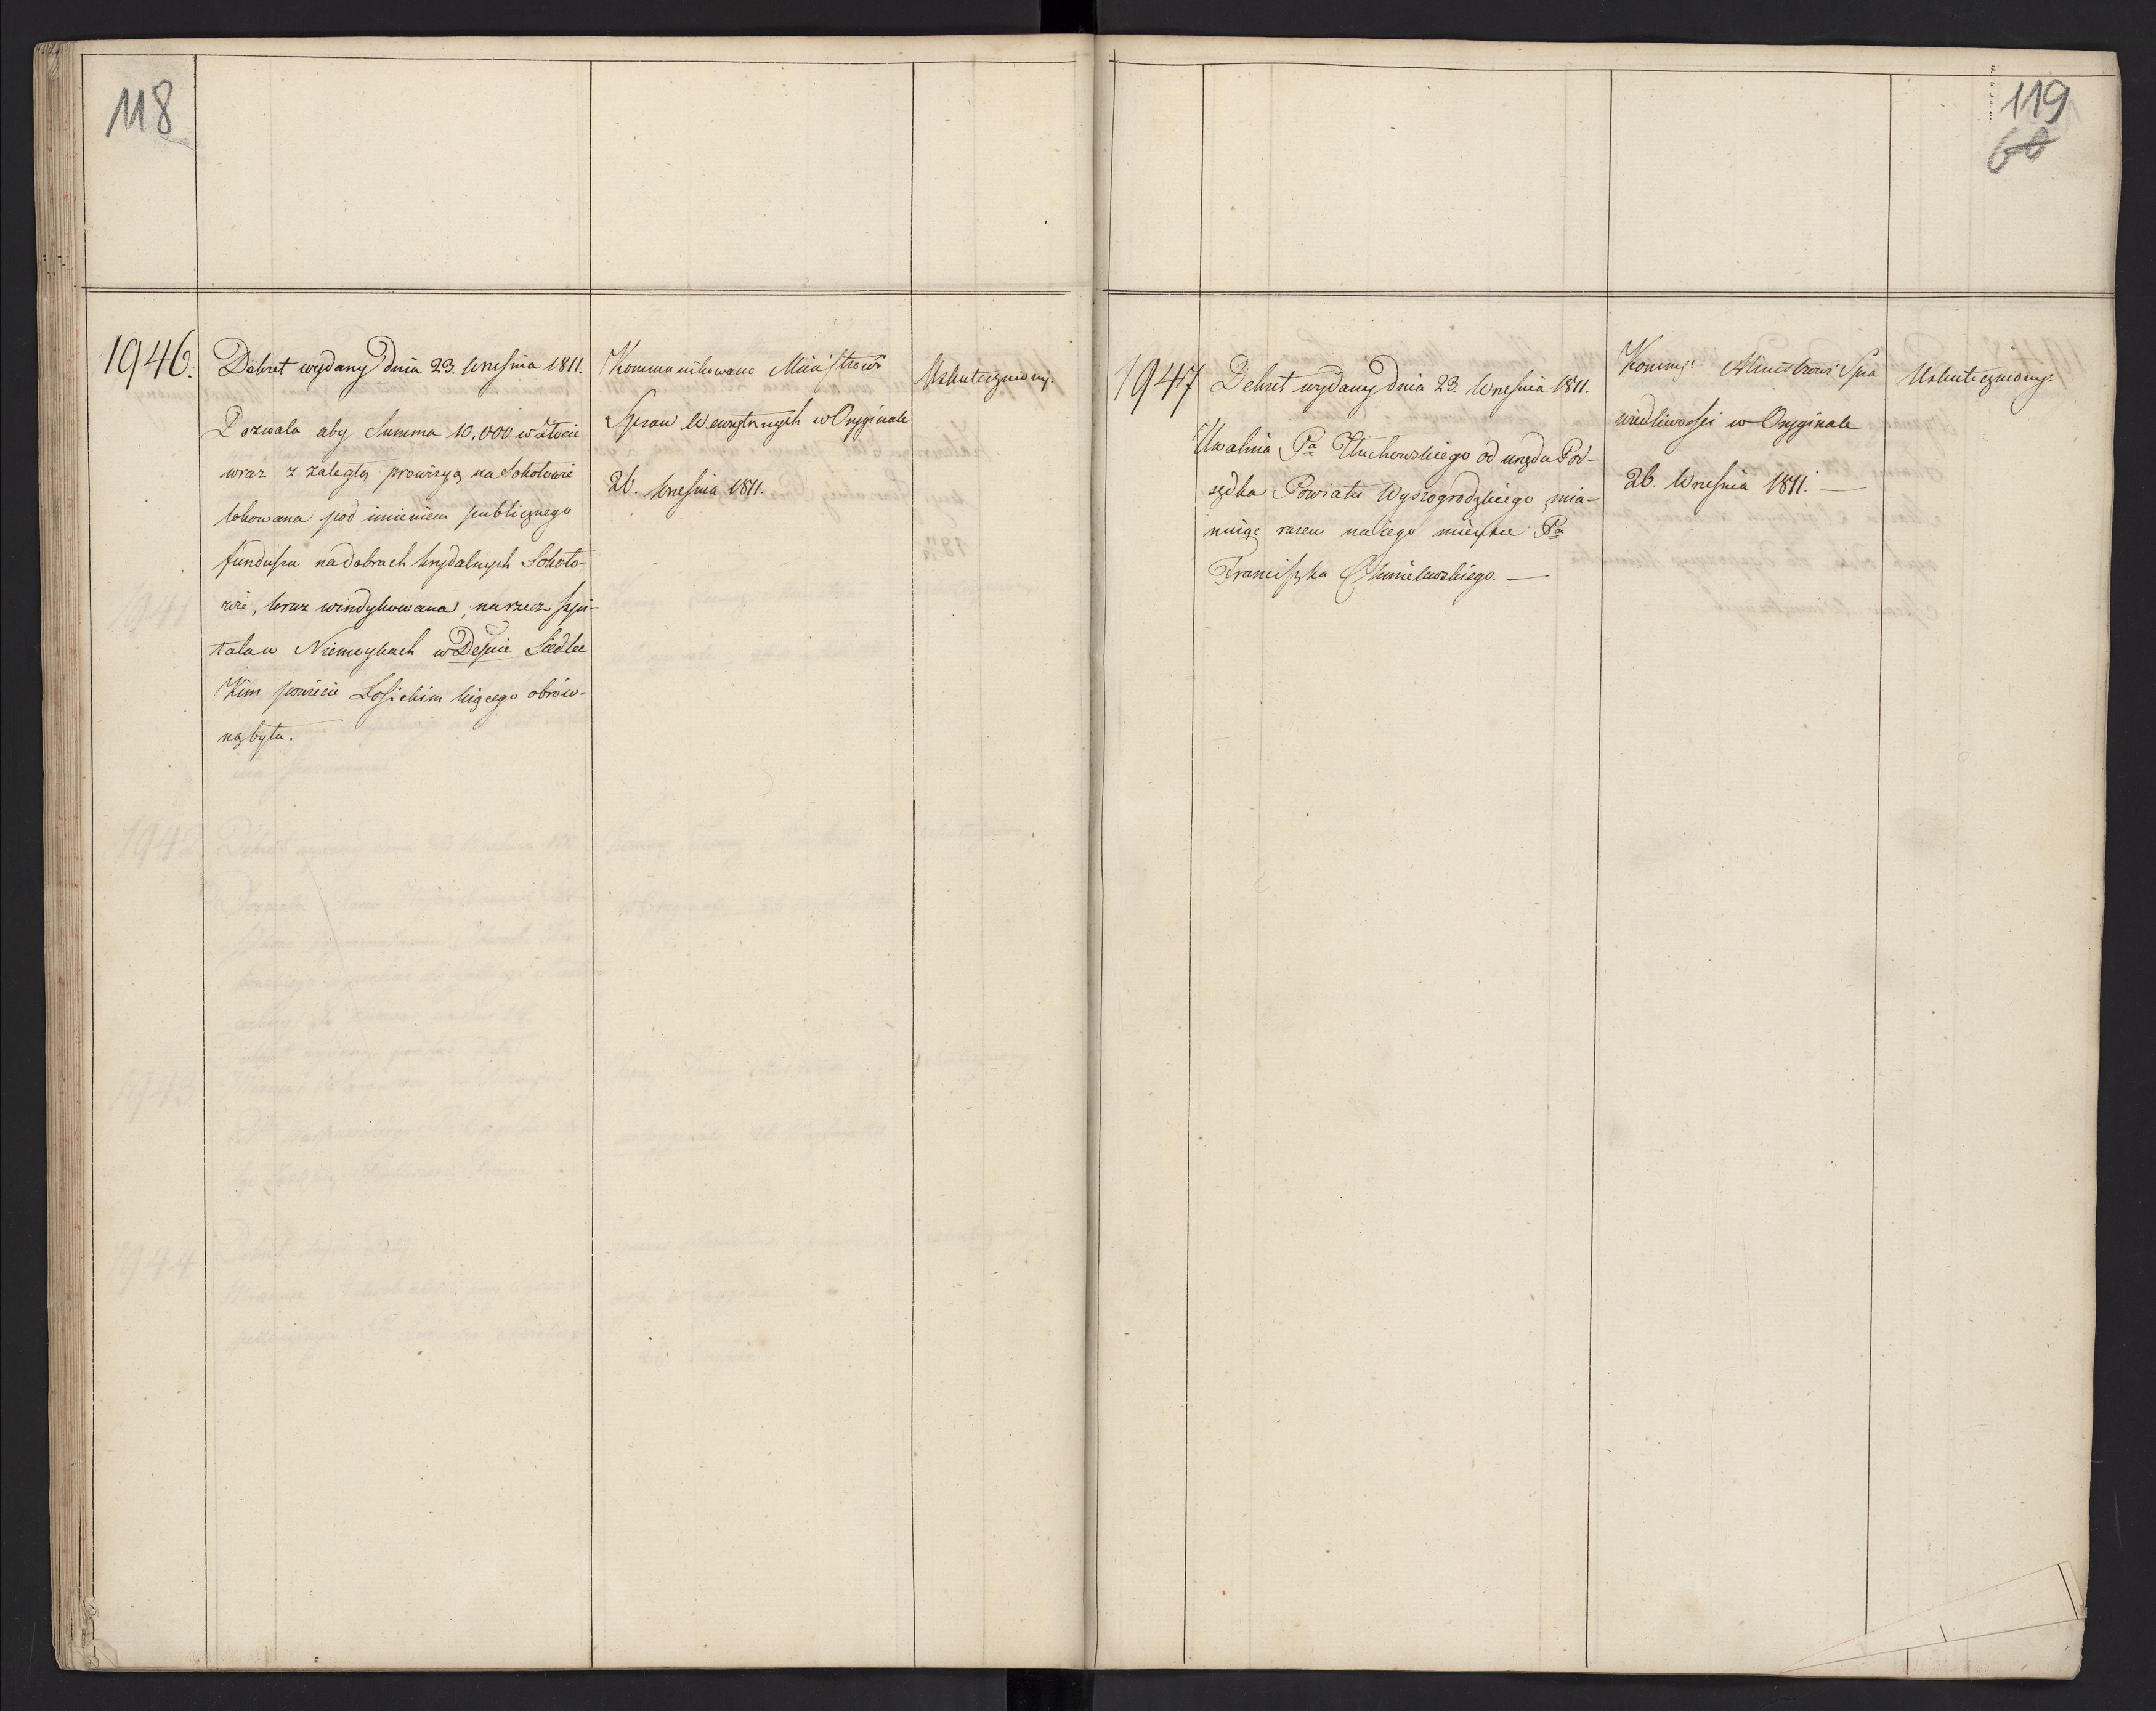 118
1946.
Dekret wydany dnia 23. Wresnia 1811.
Dozwala aby Summa 10,000 w złocie
wraz z zaległą prowizyą na Sokołowie
lokowana pod imieniem publicznego
funduszu na dobrach krydalnych Sokoło-
wie, teraz windykowana, na rzecz szpi-
tala w Niemoykach w Depcie Siedlec
Kim powiecie Łosickim
nąbyła.
Kommunikowano Ministrowi
Spraw Wewnętrznych w Oryginale
26. Wresnia 1811.
Uskuteczniony.
119
60
1947
Dekret wydany dnia 23. Wresnia 1811.
Uwalnia Pa Tłuchowskiego od urzędu Pod-
sędka Powiatu Wyszogrodzkiego, mia-
nuiąc razem na iego mieysce Pa
Franciszka Chmielewskiego. —
Kommuj: Ministrowi Spra
wiedliwosci w Oryginale
26. Wresnia 1811. —
Uskuteczniony.